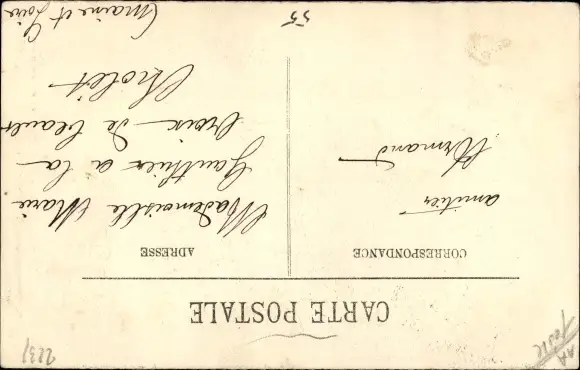 CARTE POSTALE
CORRESPONDANCE
amitiés
Armand
ADRESSE
Mademoiselle Marie
Gauthier a la
Croix de
Cholet
Maine et Loire
55
2231